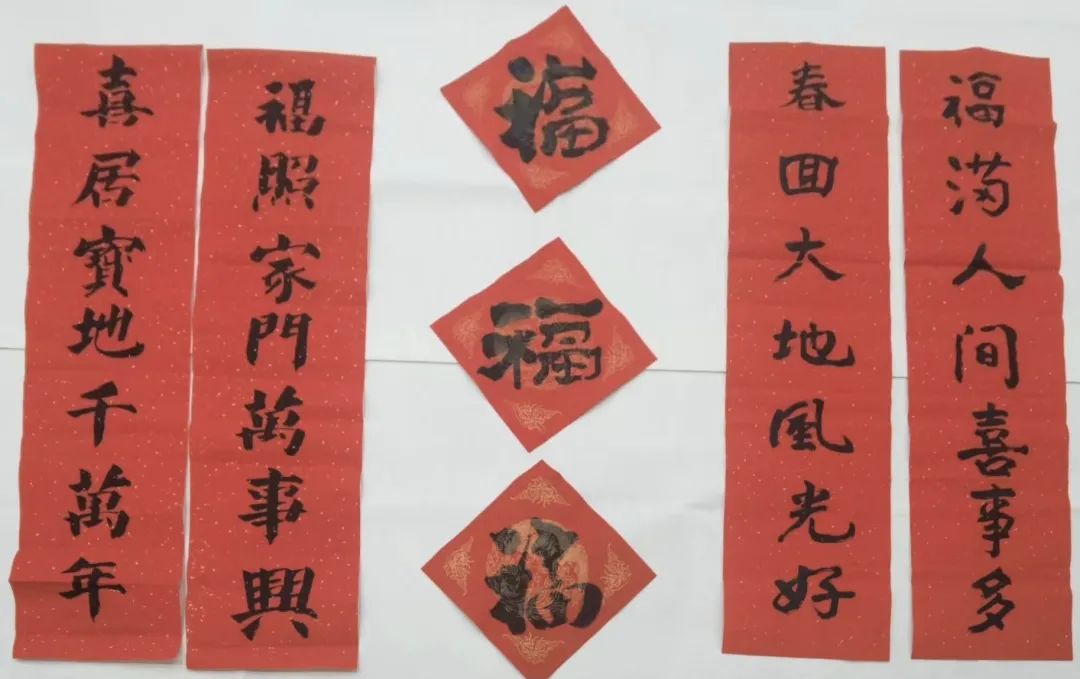 喜居寶地千萬年
福照家門萬事興
福
福
福
春回大地風光好
福满人间喜事多